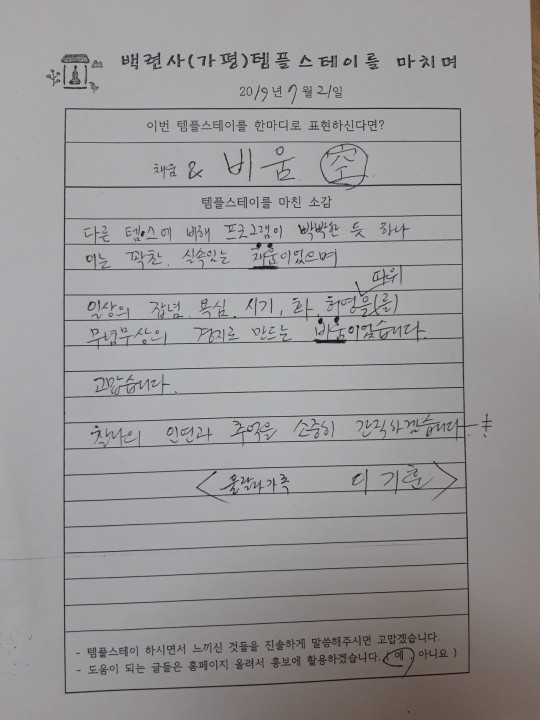 백련사(가평)템플스테이를 마치며
2019년 7월 21일
이번 템플스테이를 한마디로 표현하신다면?
채움 & 비움. 空
템플스테이를 마친 소감
다른 템스에 비해 프로그램이 빡빡한 듯 하나
이는 꽉찬, 실속있는 채움이었으며
따위
일상의 잡념, 욕심, 시기, 화, 허영을(를)
무념무상의 경지로 만드는 비움이었습니다.
고맙습니다.
찰나의 인연과 추억을 소중히 간직하겠습니다.
<울랄라가족 이기훈>
- 템플스테이 하시면서 느끼신 것들을 진솔하게 말씀해주시면 고맙겠습니다.
- 도움이 되는 글들은 홈페이지 올려서 홍보에 활용하겠습니다. ( 예, 아니요 )